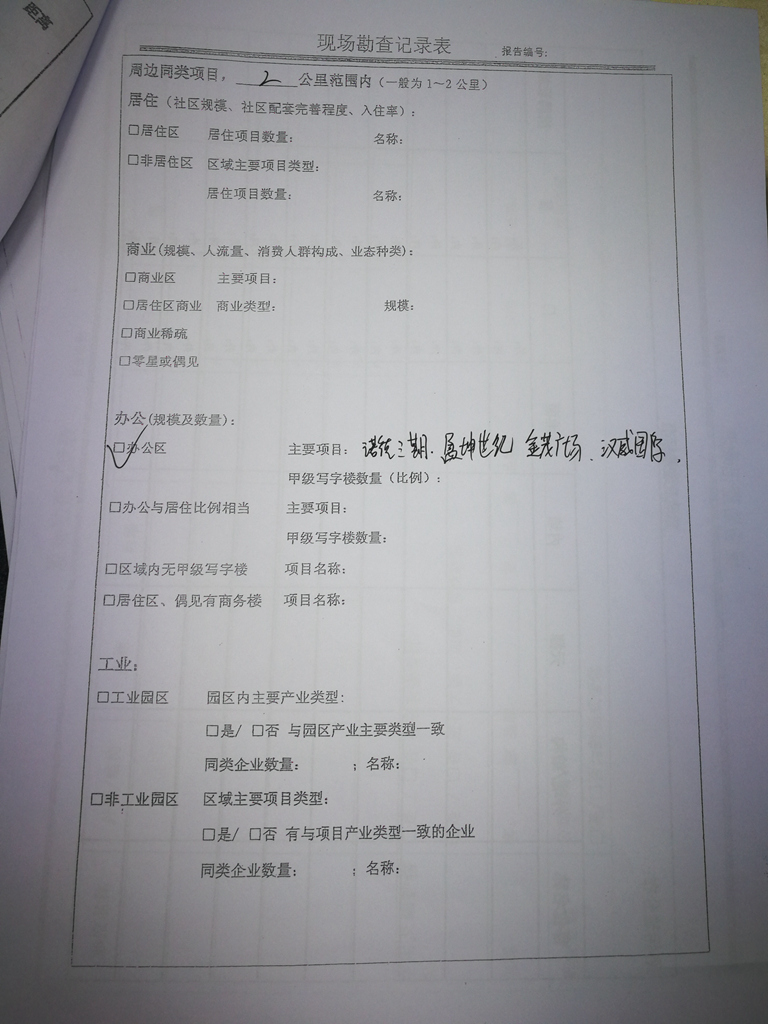 距离
现场勘查记录表
报告编号：
周边同类项目， 2 公里范围内（一般为1～2公里）
居住（社区规模、社区配套完善程度、入住率）：
□居住区 居住项目数量： 名称：
□非居住区 区域主要项目类型：
居住项目数量： 名称：
商业(规模、人流量、消费人群构成、业态种类)：
□商业区 主要项目：
□居住区商业 商业类型： 规模：
□商业稀疏
□零星或偶见
办公(规模及数量)：
☑办公区 主要项目：诺德三期.盈坤世纪 金茂广场、汉威国际.
甲级写字楼数量（比例）：
□办公与居住比例相当 主要项目：
甲级写字楼数量：
□区域内无甲级写字楼 项目名称：
□居住区、偶见有商务楼 项目名称：
工业：
□工业园区 园区内主要产业类型：
□是/ □否 与园区产业主要类型一致
同类企业数量： ；名称：
□非工业园区 区域主要项目类型：
□是/ □否 有与项目产业类型一致的企业
同类企业数量： ；名称：